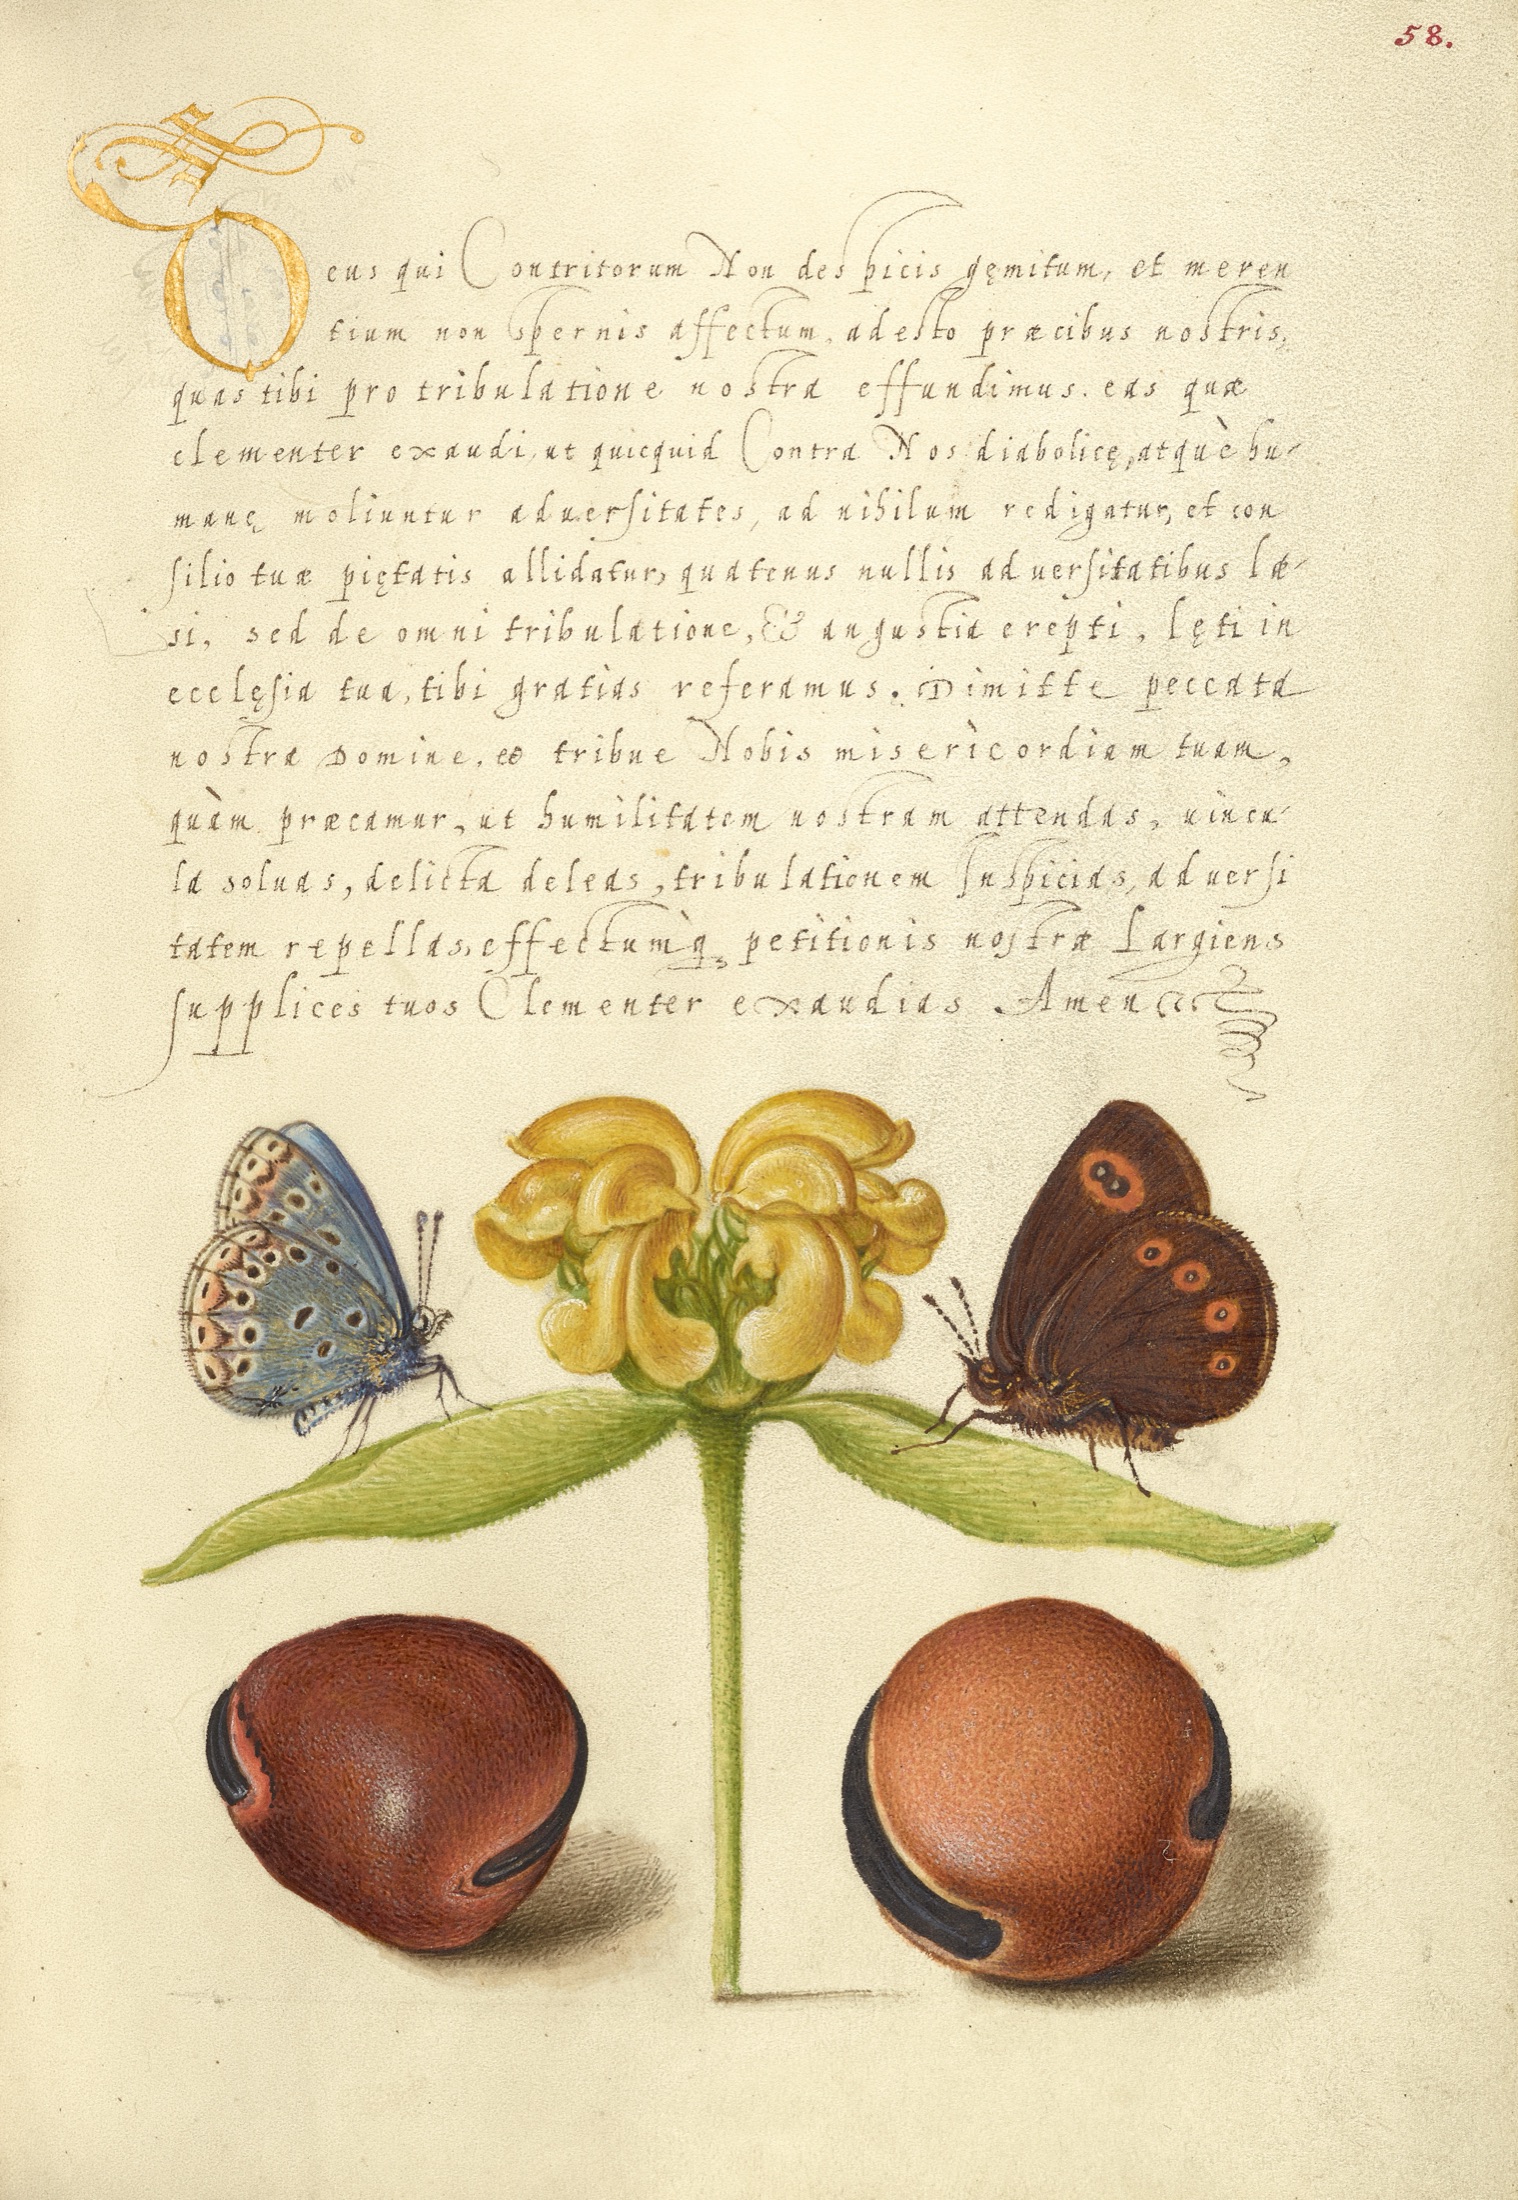 58.
Deus qui Contritorum Non despicis gęmitum, et meren
tium non spernis affectum, adesto præcibus nostris,
quas tibi pro tribulatione nostra effundimus. eas quæ
clementer exaudi, ut quicquid Contra Nos diabolicę, atquè hu-
manę moliuntur aduersitates, ad nihilum redigatur, et con
silio tuæ piętatis allidatur, quatenus nullis aduersitatibus læ-
si, sed de omni tribulatione, & angustia erepti, lęti in
ecclęsia tua, tibi gratias referamus. Dimitte peccata
nostra Domine, et tribue Nobis misericordiam tuam,
quàm præcamur, ut humilitatem nostram attendas, uincu-
la soluas, delicta deleas, tribulationem Inspicias, aduersi
tatem repellas, effectumq̀ petitionis nostræ Largiens
supplices tuos Clementer exaudias Amen